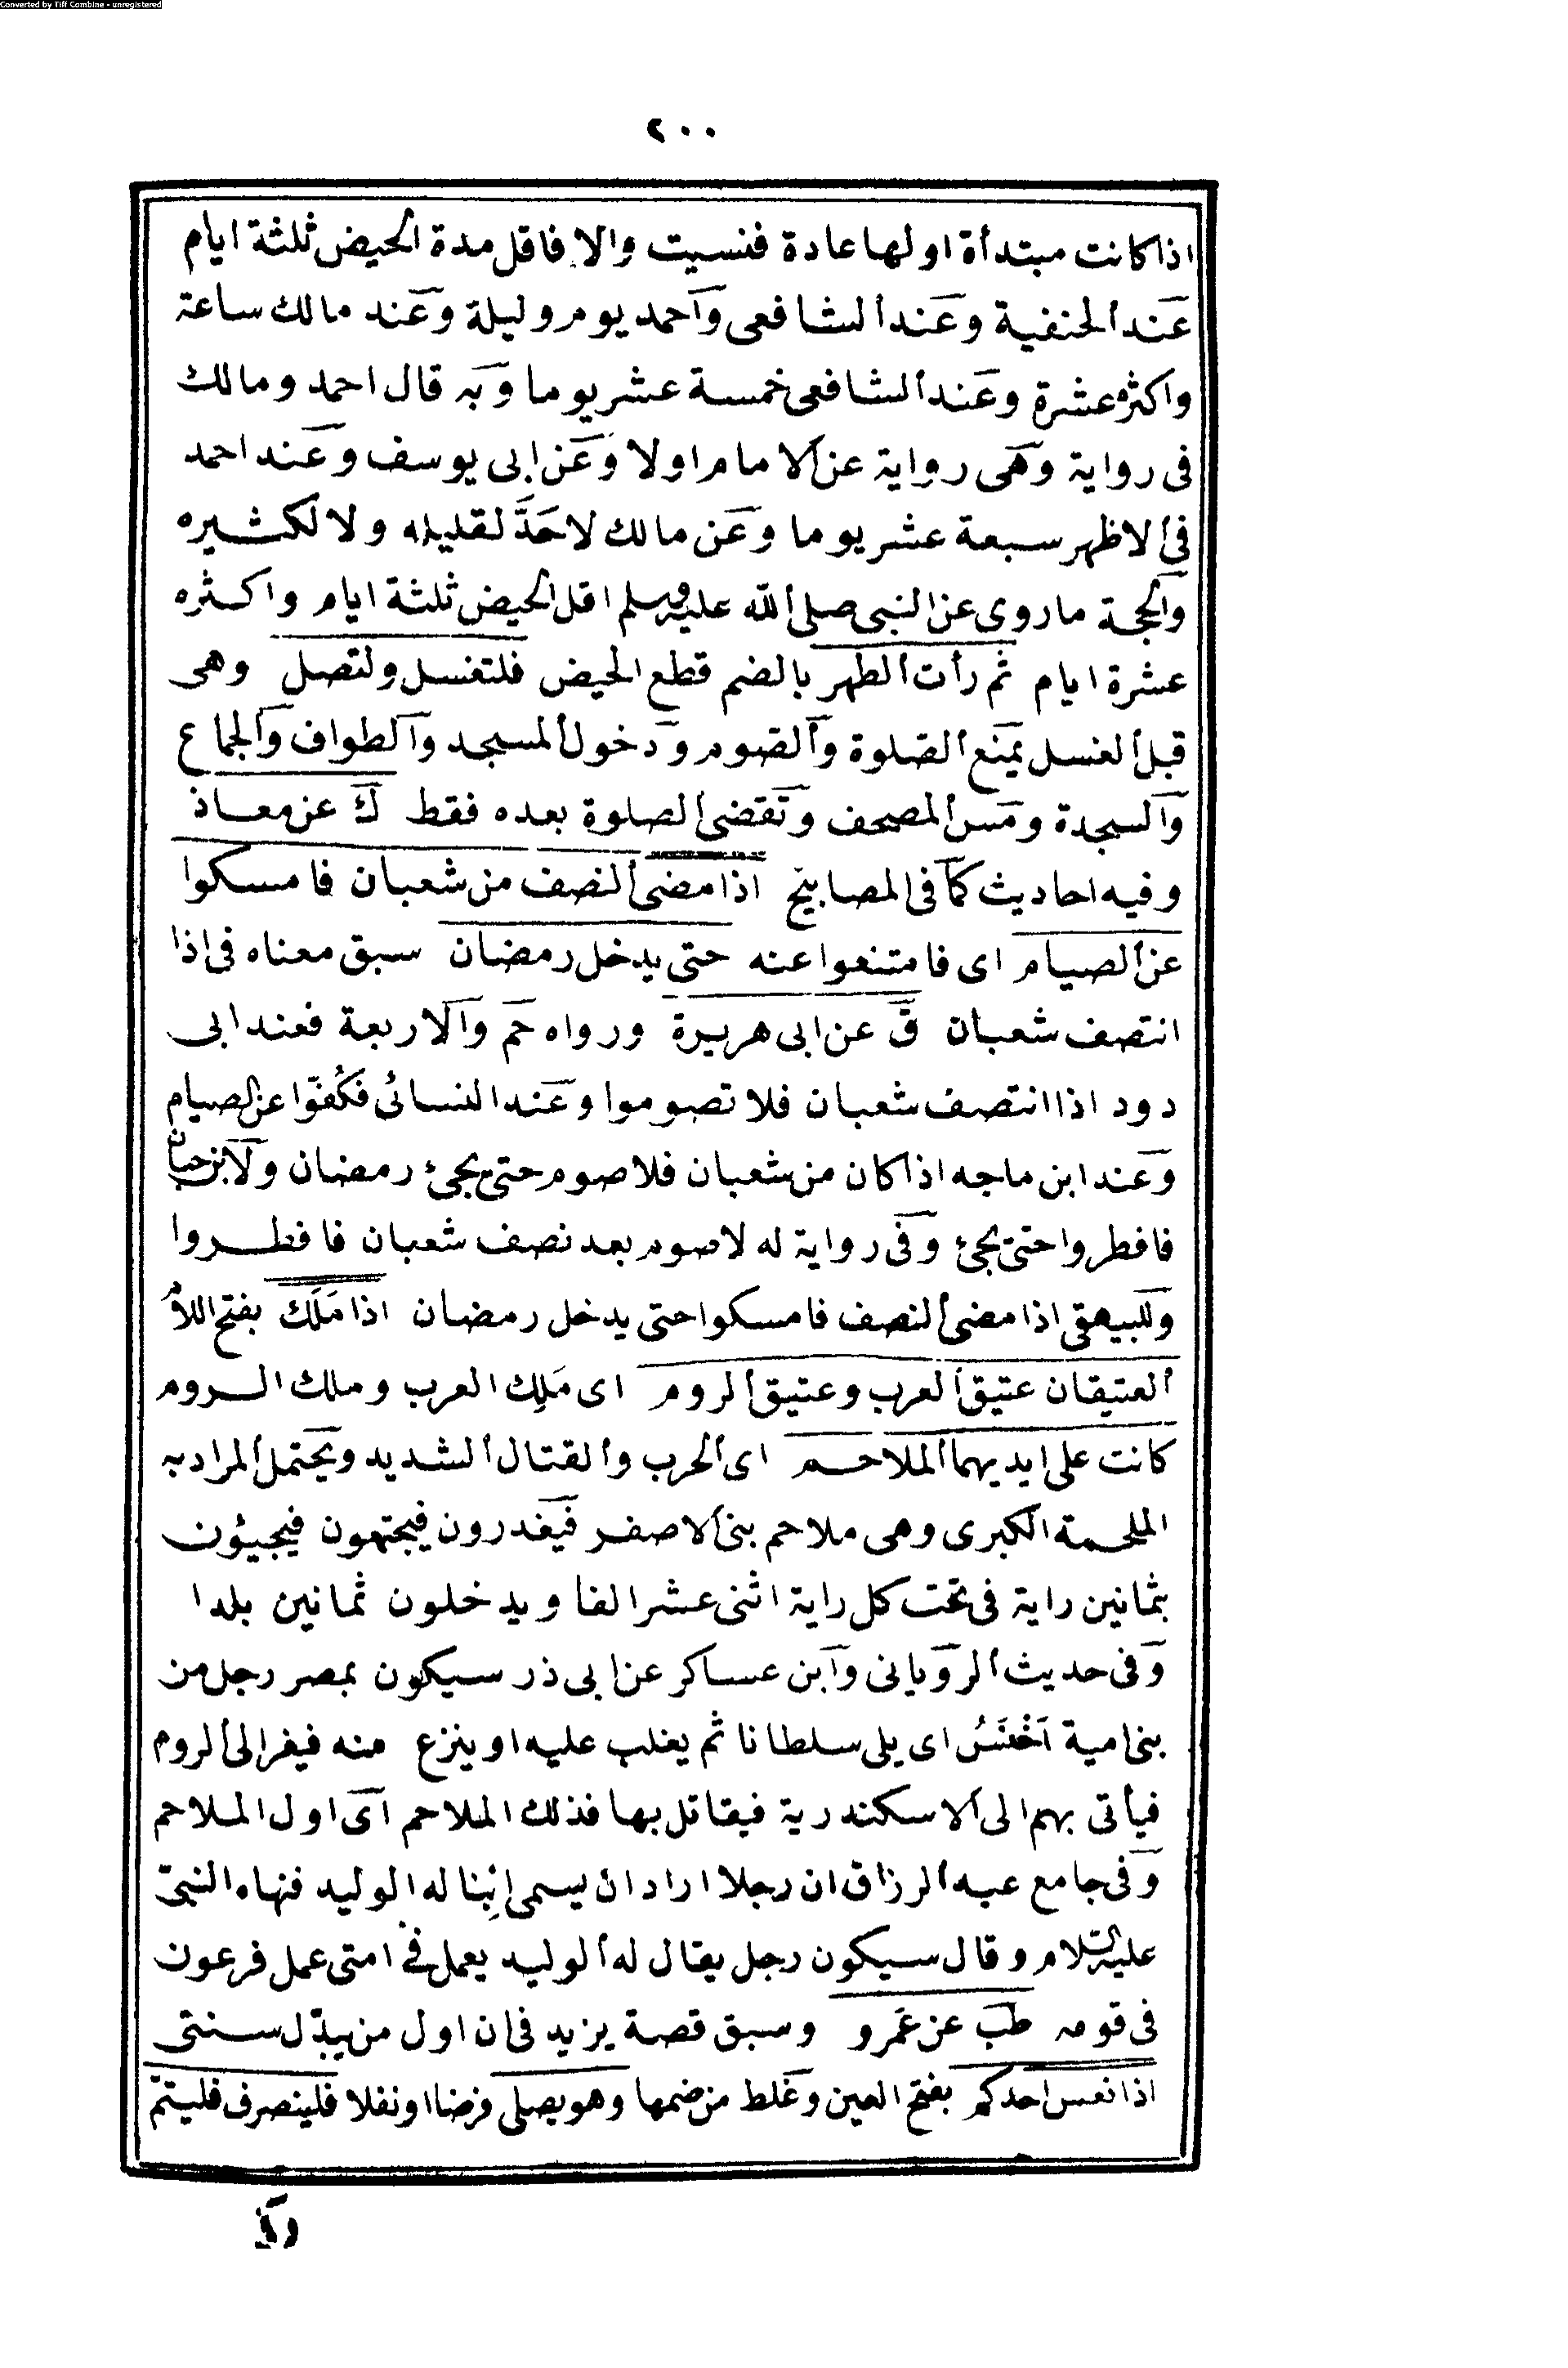 Converted by Tiff Combine - unregistered
٢٠٠
اذا كانت مبتدأة او لها عادة فنسيت والا فاقل مدة الحيض ثلثة ايام
عند الحنفية وعند الشافعى واحمد يوم وليلة وعند مالك ساعة
واكثره عشرة وعند الشافعى خمسة عشر يوما وبه قال احمد ومالك
فى رواية وهى رواية عن الامام اولا وعن ابى يوسف وعند احمد
فى الاظهر سبعة عشر يوما وعن مالك لا حَدَّ لقليله ولا لكثيره
والحجة ماروى عن النبى صلى الله عليه وسلم اقل الحيض ثلثة ايام واكثره
عشرة ايام ثم رأت الطهر بالضم قطع الحيض فلتغسل ولتصل وهى
قبل الغسل يمنع الصلوة والصوم ودخول المسجد والطواف والجماع
والسجدة ومس المصحف وتقضى الصلوة بعده فقط ك عن معاذ
وفيه احاديث كما فى المصابيح اذا مضى النصف من شعبان فامسكوا
عن الصيام اى فامتنعوا عنه حتى يدخل رمضان سبق معناه فى اذا
انتصف شعبان ق عن ابى هريرة ورواه حم والاربعة فعند ابى
دود اذا انتصف شعبان فلا تصوموا وعند النسائى فكُفوّا عن الصيام
وعند ابن ماجه اذا كان من شعبان فلا صوم حتى يجئ رمضان ولابن حبان
فافطروا حتى يجئ وفى رواية له لا صوم بعد نصف شعبان فافطروا
وللبيهقى اذا مضى النصف فامسكوا حتى يدخل رمضان اذا مَلَك بفتح اللام
العتيقان عتيق العرب وعتيق الروم اى مَلِك العرب وملك الروم
كانت على ايديهما الملاحم اى الحرب والقتال الشديد ويحتمل المراد به
الملحمة الكبرى وهى ملاحم بنى الاصفر فيغدرون فيجتهون فيجيؤن
بثمانين راية فى تحت كل راية اثنى عشر الفا ويدخلون ثمانين بلدا
وفى حديث الرويانى وابن عساكر عن ابى ذر سيكون بمصر رجل من
بنى امية اَخْنَسُ اى يلى سلطانا ثم يغلب عليه او ينزع منه فيفر الى الروم
فيأتى بهم الى الاسكندرية فيقاتل بها فذلك الملاحم اى اول الملاحم
وفى جامع عبد الرزاق ان رجلا اراد ان يسمى اِبْنا له الوليد فنهاه النبىّ
عليه السلام وقال سيكون رجل يقال له الوليد يعمل فى امتى عمل فرعون
فى قومه طب عن عَمرو وسبق قصة يزيد فى ان اول من يبدّل سنتى
اذا نعس احدكم بفتح العين وغلط من ضمها وهو يصلى فرضا او نفلا فلينصرف فليتمّ